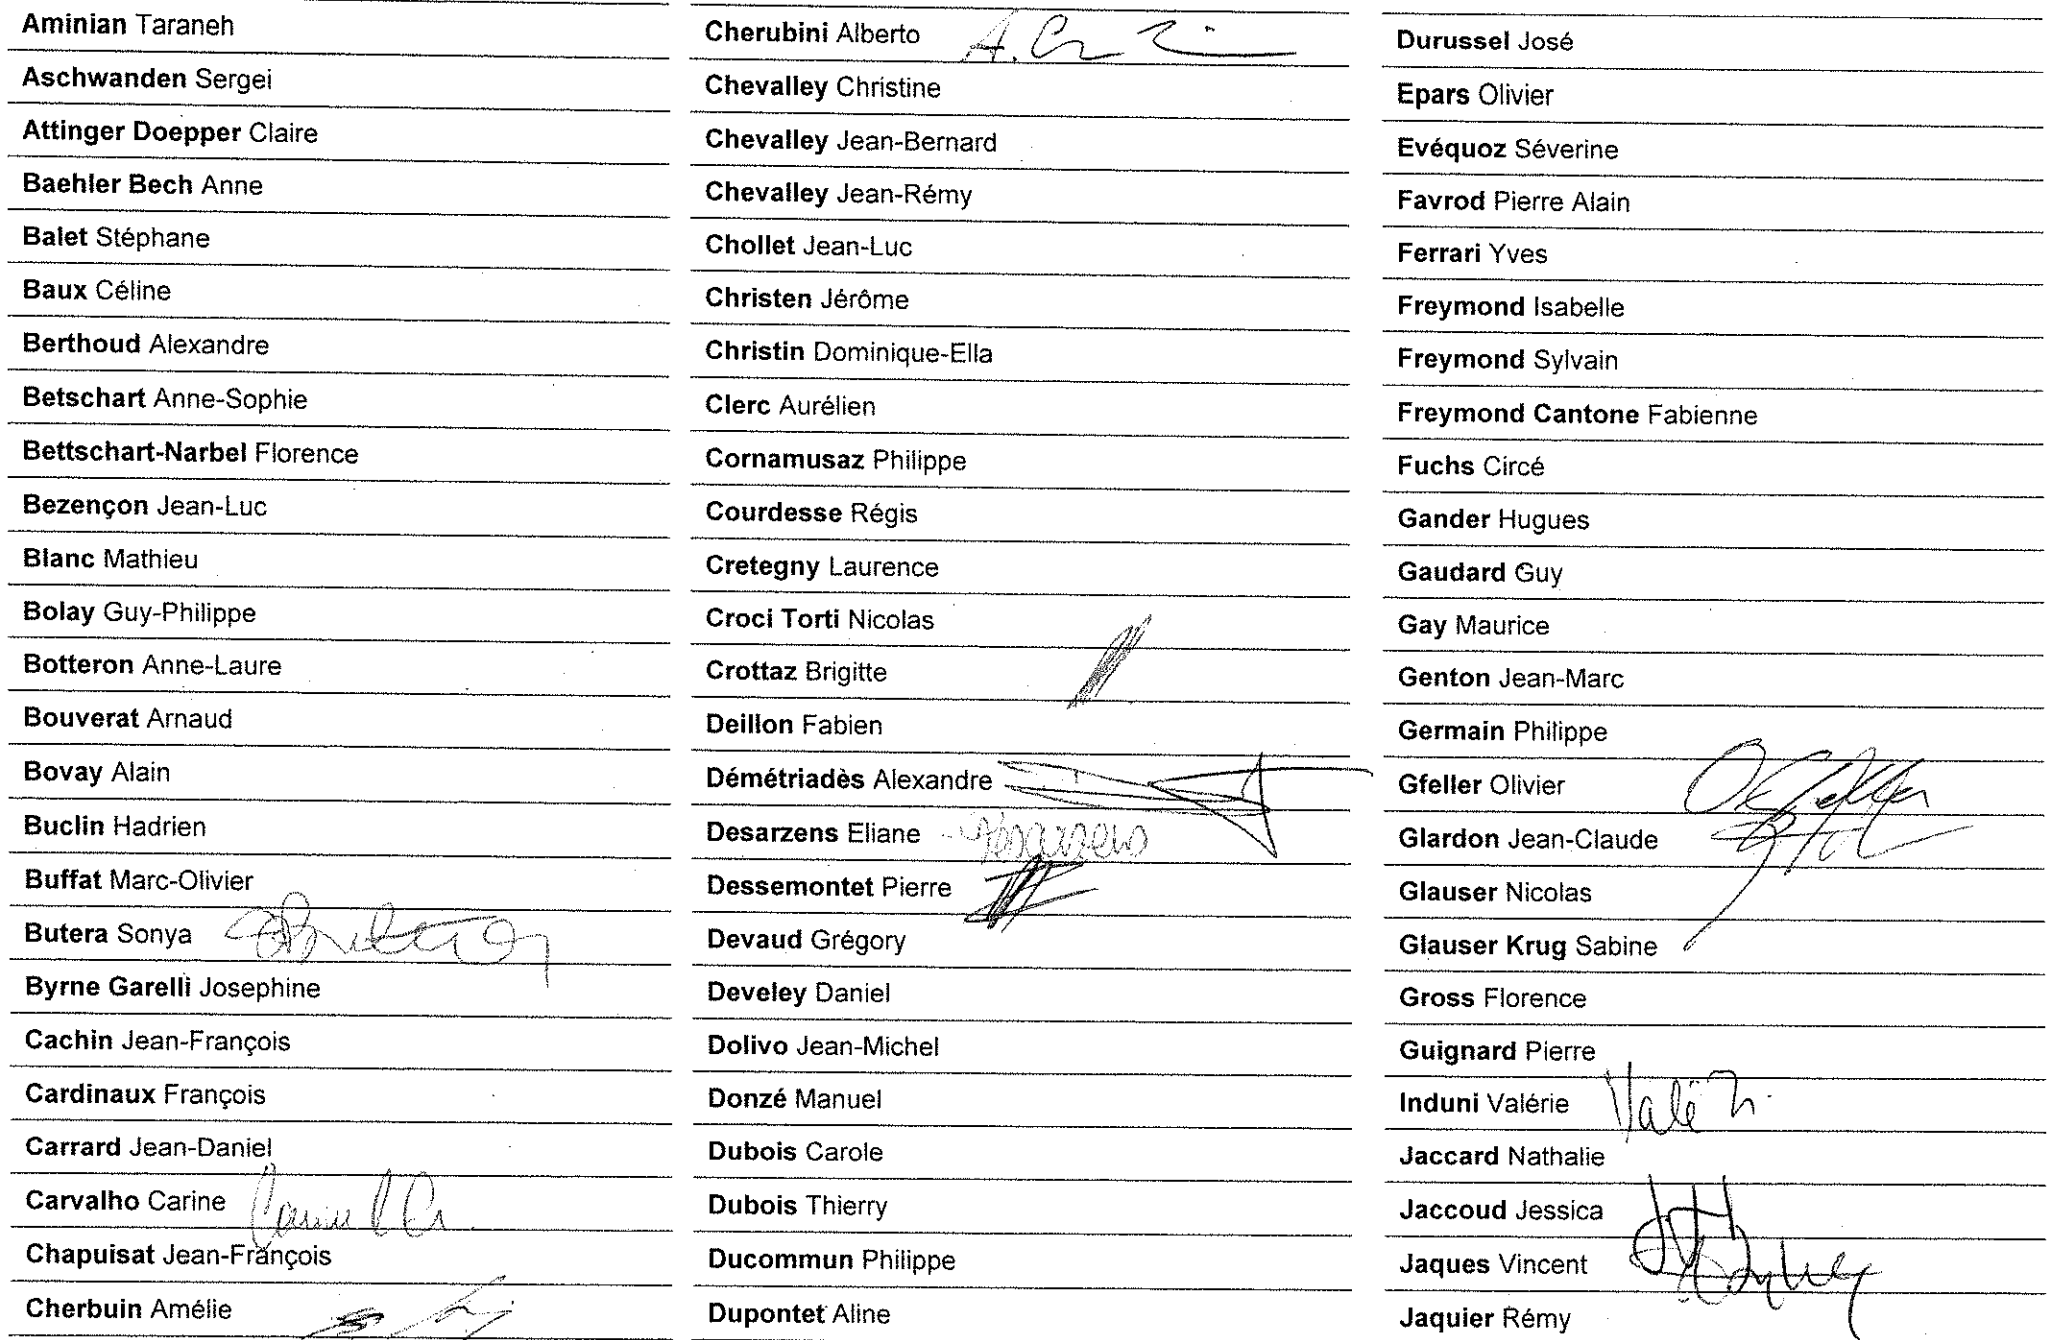 Aminian Taraneh
Aschwanden Sergei
Attinger Doepper Claire
Baehler Bech Anne
Balet Stéphane
Baux Céline
Berthoud Alexandre
Betschart Anne-Sophie
Bettschart-Narbel Florence
Bezençon Jean-Luc
Blanc Mathieu
Bolay Guy-Philippe
Botteron Anne-Laure
Bouverat Arnaud
Bovay Alain
Buclin Hadrien
Buffat Marc-Olivier
Butera Sonya
Byrne Garelli Josephine
Cachin Jean-François
Cardinaux François
Carrard Jean-Daniel
Carvalho Carine
Chapuisat Jean-François
Cherbuin Amélie
Cherubini Alberto
Chevalley Christine
Chevalley Jean-Bernard
Chevalley Jean-Rémy
Chollet Jean-Luc
Christen Jérôme
Christin Dominique-Ella
Clerc Aurélien
Cornamusaz Philippe
Courdesse Régis
Cretegny Laurence
Croci Torti Nicolas
Crottaz Brigitte
Deillon Fabien
Démétriadès Alexandre
Desarzens Eliane Desarzens
Dessemontet Pierre
Devaud Grégory
Develey Daniel
Dolivo Jean-Michel
Donzé Manuel
Dubois Carole
Dubois Thierry
Ducommun Philippe
Dupontet Aline
Durussel José
Epars Olivier
Evéquoz Séverine
Favrod Pierre Alain
Ferrari Yves
Freymond Isabelle
Freymond Sylvain
Freymond Cantone Fabienne
Fuchs Circé
Gander Hugues
Gaudard Guy
Gay Maurice
Genton Jean-Marc
Germain Philippe
Gfeller Olivier O Gfeller
Glardon Jean-Claude
Glauser Nicolas
Glauser Krug Sabine
Gross Florence
Guignard Pierre
Induni Valérie
Jaccard Nathalie
Jaccoud Jessica
Jaques Vincent
Jaquier Rémy